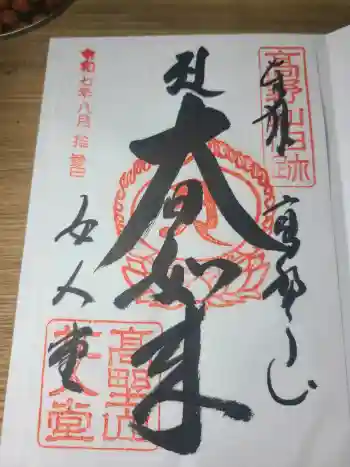 高野山旧跡
奉拝
高野山
大日如来
令和七年八月拾 日
女人堂
高野山
女人堂